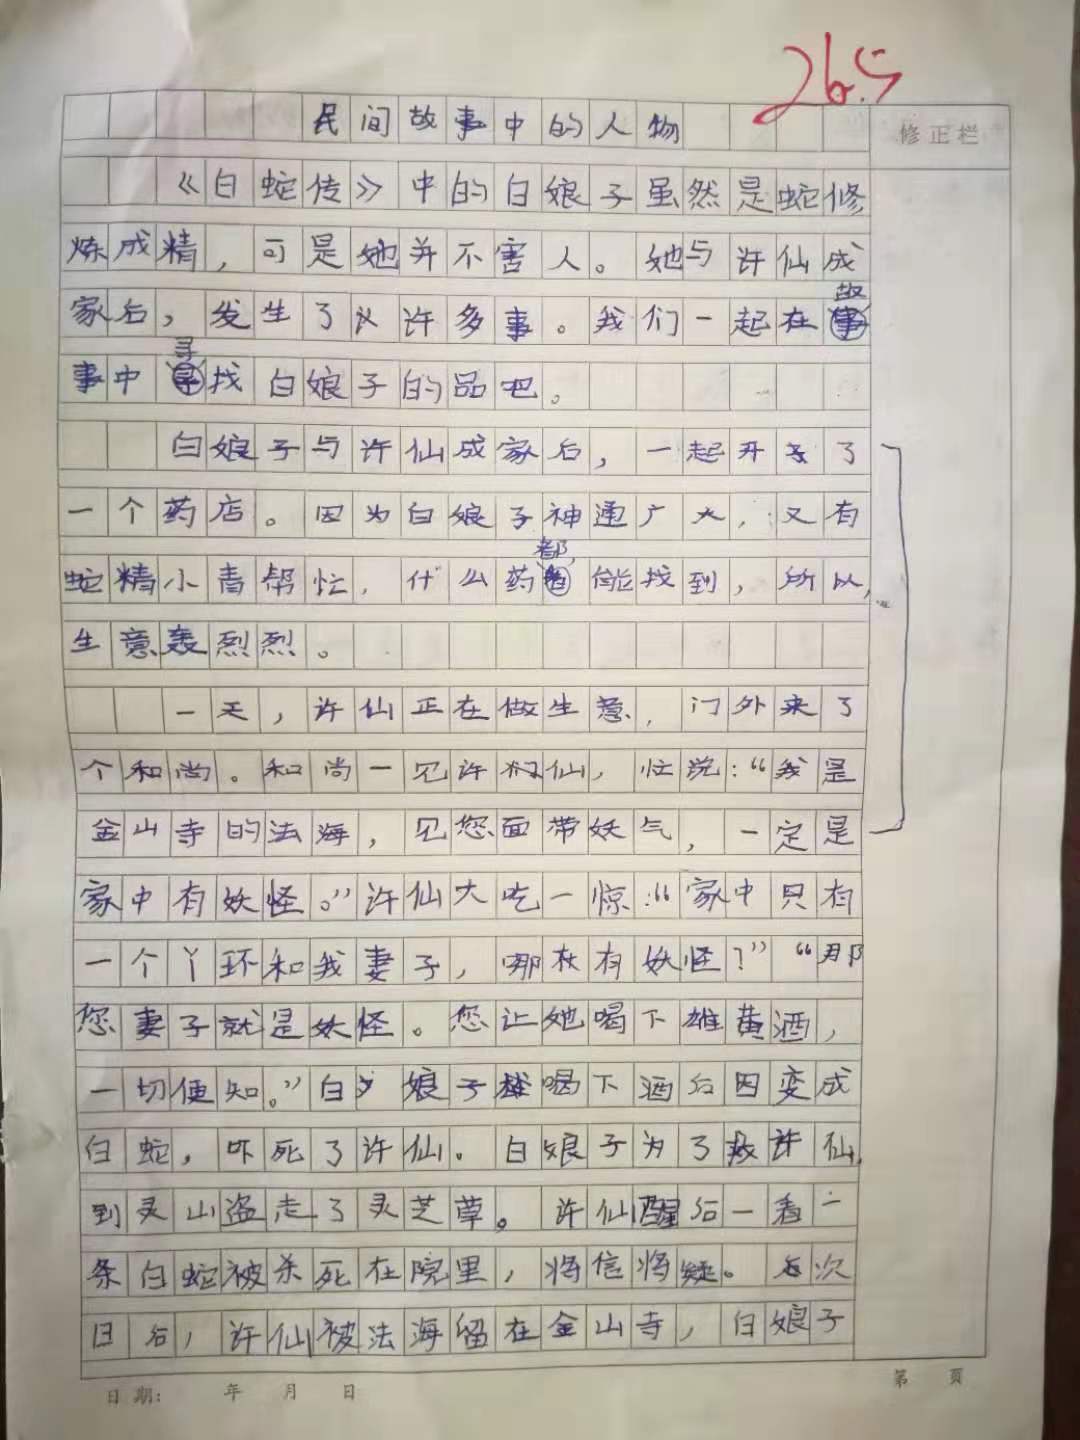 26.5
民间故事中的人物
修正栏
《白蛇传》中的白娘子虽然是蛇修
炼成精，可是她并不害人。她与许仙成
家后，发生了许多事。我们一起在故
事中寻找白娘子的品吧。
白娘子与许仙成家后，一起开了
一个药店。因为白娘子神通广大，又有
蛇精小青帮忙，什么药都能找到，所以，
生意轰烈烈。
一天，许仙正在做生意，门外来了
个和尚。和尚一见许仙，忙说：“我是
金山寺的法海，见您面带妖气，一定是
家中有妖怪。”许仙大吃一惊：“家中只有
一个丫环和我妻子，哪有妖怪？”“那
您妻子就是妖怪。您让她喝下雄黄酒，
一切便知。”白娘子喝下酒后因变成
白蛇，吓死了许仙。白娘子为了救许仙，
到灵山盗走了灵芝草。许仙醒后一看一
条白蛇被杀死在院里，将信将疑。次
日后，许仙被法海留在金山寺，白娘子
日期： 年 月 日
第 页